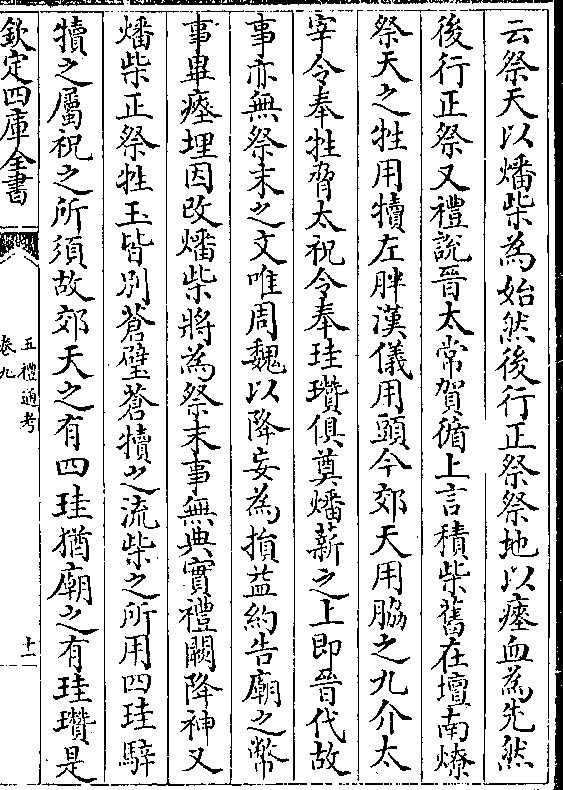 云祭天以燔柴為始然後行正祭祭地以瘞血為先然
後行正祭又禮說晉太常賀循上言積柴舊在壇南燎
祭天之牲用犢左胖漢儀用頭今郊天用脇之九介太
宰令奉牲脅太祝令奉珪瓚俱奠燔薪之上即晉代故
事亦無祭末之文唯周魏以降妄為損益約告廟之幣
事畢瘞埋因改燔柴將為祭末事無典實禮闕降神又
燔柴正祭牲玉皆別蒼璧蒼犢之流柴之所用四珪騂
犢之屬祝之所須故郊天之有四珪猶廟之有珪瓚是
欽定四庫全書
五禮通考
卷九
十一